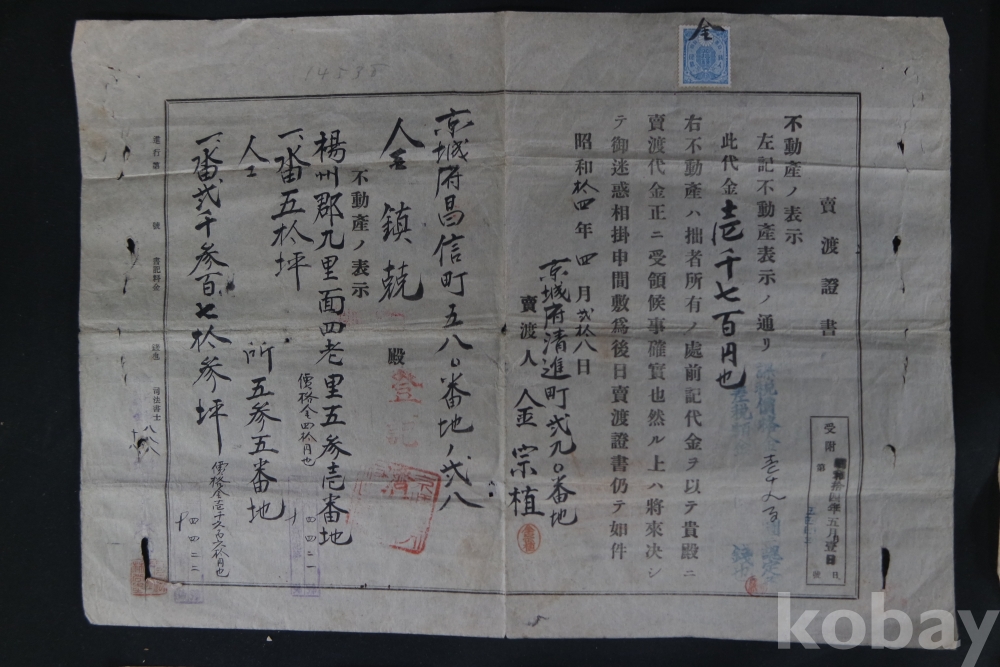 賣渡證書
不動產ノ表示
左記不動產表示ノ通リ
此代金壱千七百円也
右不動產ハ拙者所有ノ處前記代金ヲ以テ貴殿ニ
賣渡代金正ニ受領候事確實也然ル上ハ將來決シ
テ御迷惑相掛申間敷爲後日賣渡證書仍テ如件
昭和拾四年四月弐拾八日
京城府清進町弐九〇番地
賣渡人 金宗植
京城府昌信町五八〇番地ノ弐八
金鎮兢 殿
不動產ノ表示
楊州郡九里面四老里五参壱番地
一、畓五拾坪
價格金四拾円也
仝 所五参五番地
一、畓弐千参百七拾参坪
價格金壱千六百六拾円也
受附 昭和拾四年五月壹日
第 號
登記濟
進行第 號 書記料金 司法書士
金
14535
四四二一
四四二二
kobay